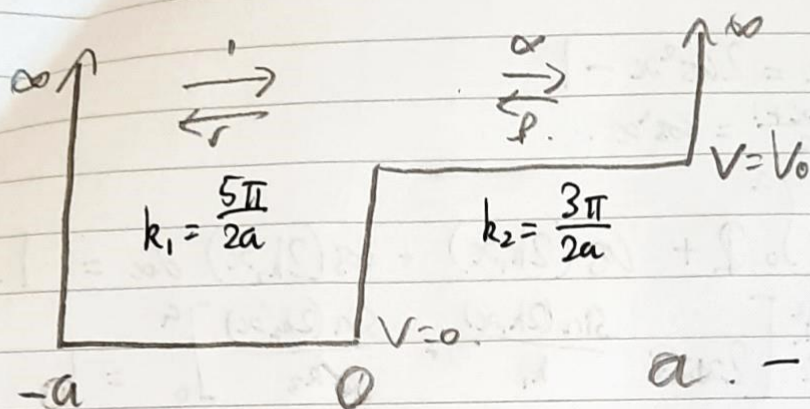 ∞ 1 α ∞
r β
V=V₀
k₁ = 5π/2a k₂ = 3π/2a
V=0.
-a 0 a. -